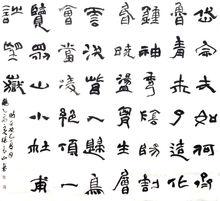 岱宗夫如何齊
魯青未了造化
鍾神秀陰陽割
昏曉盪胸生層
雲決眥入歸鳥
會當凌絕頂一
覽眾山小杜甫
詩望嶽